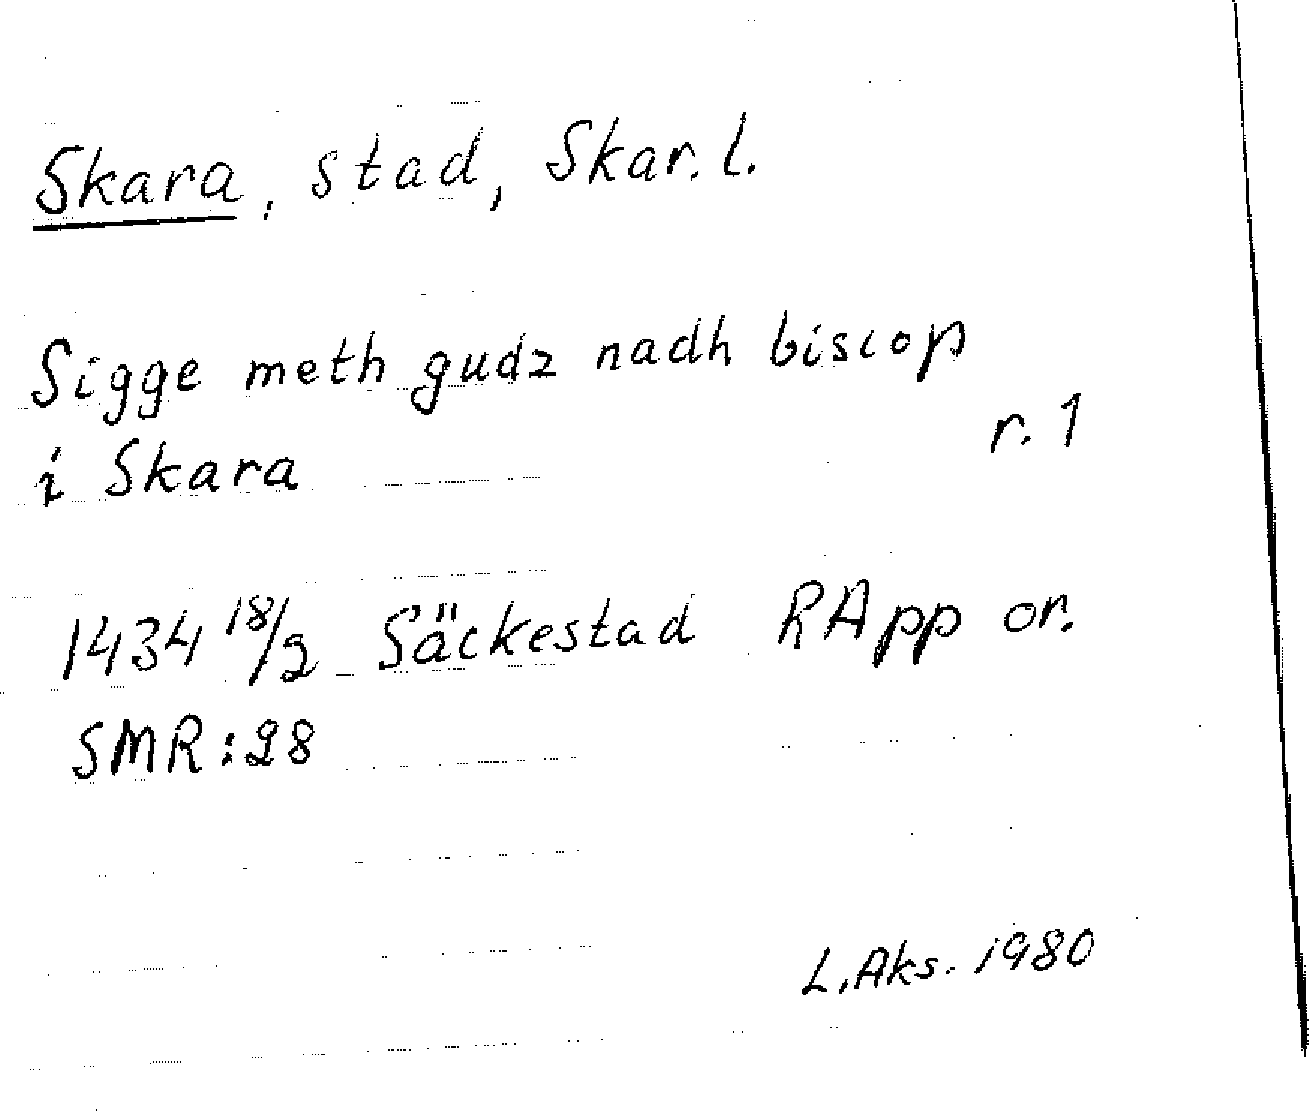 Skara, stad, Skar. l.
Sigge meth gudz nadh biscop
i Skara r. 1
1434 18/2 Säckestad RApp or.
SMR: 28
L. Aks. 1980